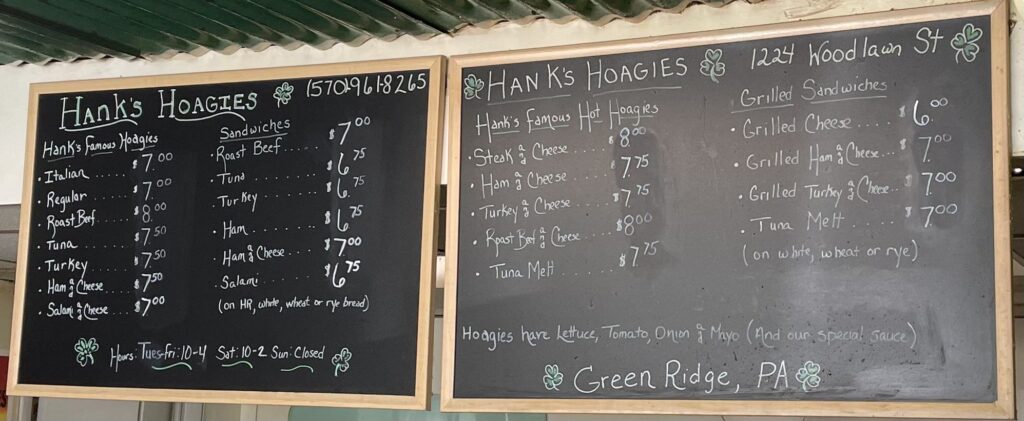 Hank's Hoagies (570)-961-8265
Hank's Famous Hoagies
• Italian ..... $7.00
• Regular ..... $7.00
Roast Beef ..... $8.00
• Tuna ..... $7.50
• Turkey ..... $7.50
• Ham & Cheese ..... $7.50
• Salami & Cheese ..... $7.00
Sandwiches
• Roast Beef ..... $7.00
• Tuna ........ $6.75
• Turkey ....... $6.75
• Ham ....... $6.75
Ham & Cheese ..... $7.00
• Salami ....... $6.75
(on HR, white, wheat or rye bread)
Hours: Tues-Fri: 10-4 Sat: 10-2 Sun: Closed
Hank's Hoagies 1224 Woodlawn St
Hank's Famous Hot Hoagies
• Steak & Cheese ..... $8.00
• Ham & Cheese ..... 7.75
• Turkey & Cheese .... $7.75
• Roast Beef & Cheese ... $8.00
• Tuna Melt ....... $7.75
Grilled Sandwiches
• Grilled Cheese .... $6.00
• Grilled Ham & Cheese ... $7.00
• Grilled Turkey & Cheese .. $7.00
• Tuna Melt ...... $7.00
(on white, wheat or rye)
Hoagies have Lettuce, Tomato, Onion & Mayo (And our special sauce)
Green Ridge, PA